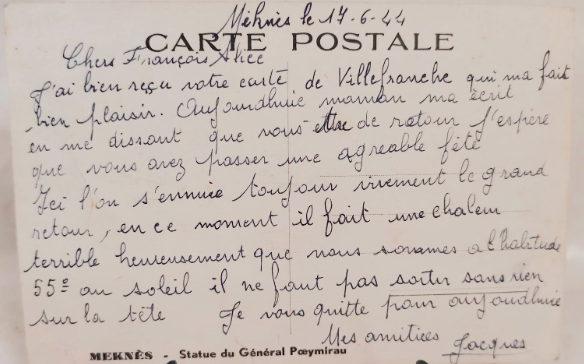 Méknès le 17-6-44
CARTE POSTALE
Chers François Alice
J'ai bien reçu votre carte de Villefranche qui ma fait
bien plaisir. Aujourdhuie maman ma écrit
en me dissant que vous ette de retour j'espère
que vous avez passer une agreable fête
Ici l'on s'ennuie toujour vivement le grand
retour, en ce moment il fait une chaleur
terrible heureusement que nous sommes a l'habitude
55° au soleil il ne faut pas sortir sans rien
sur la tête Je vous quitte pour aujourdhuie
Mes amitiées Jacques
MEKNÈS - Statue du Général Pœymirau